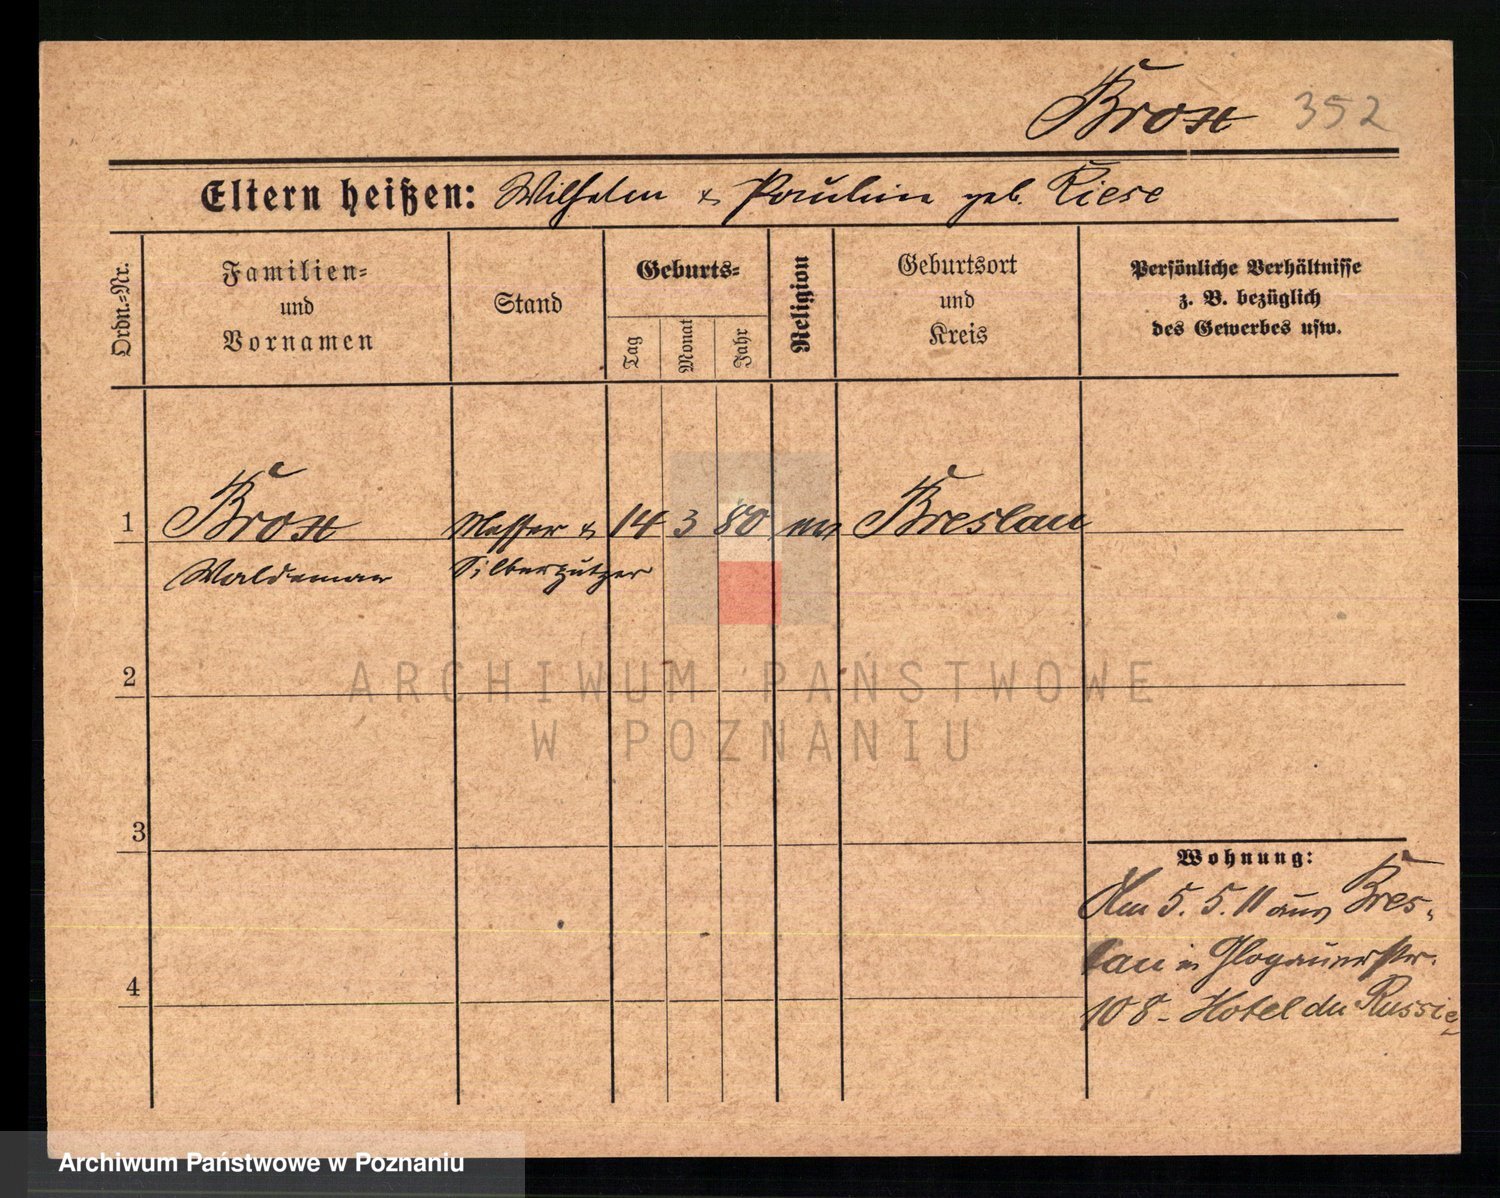 Brox 352
Eltern heißen: Wilhelm & Pauline geb. Riese
Ordn.=Nr.
Familien=
und
Vornamen
Stand
Geburts=
Tag
Monat
Jahr
Religion
Geburtsort
und
Kreis
Persönliche Verhältnisse
z. B. bezüglich
des Gewerbes usw.
1 Brox Messer & 14 3 80 Breslau
Waldemar Silberputzer
2
3
4
Wohnung:
Am 5. 5. 11 aus Bres-
lau in Glogauerstr.
108 - Hotel du Russie
ARCHIWUM PAŃSTWOWE
W POZNANIU
Archiwum Państwowe w Poznaniu